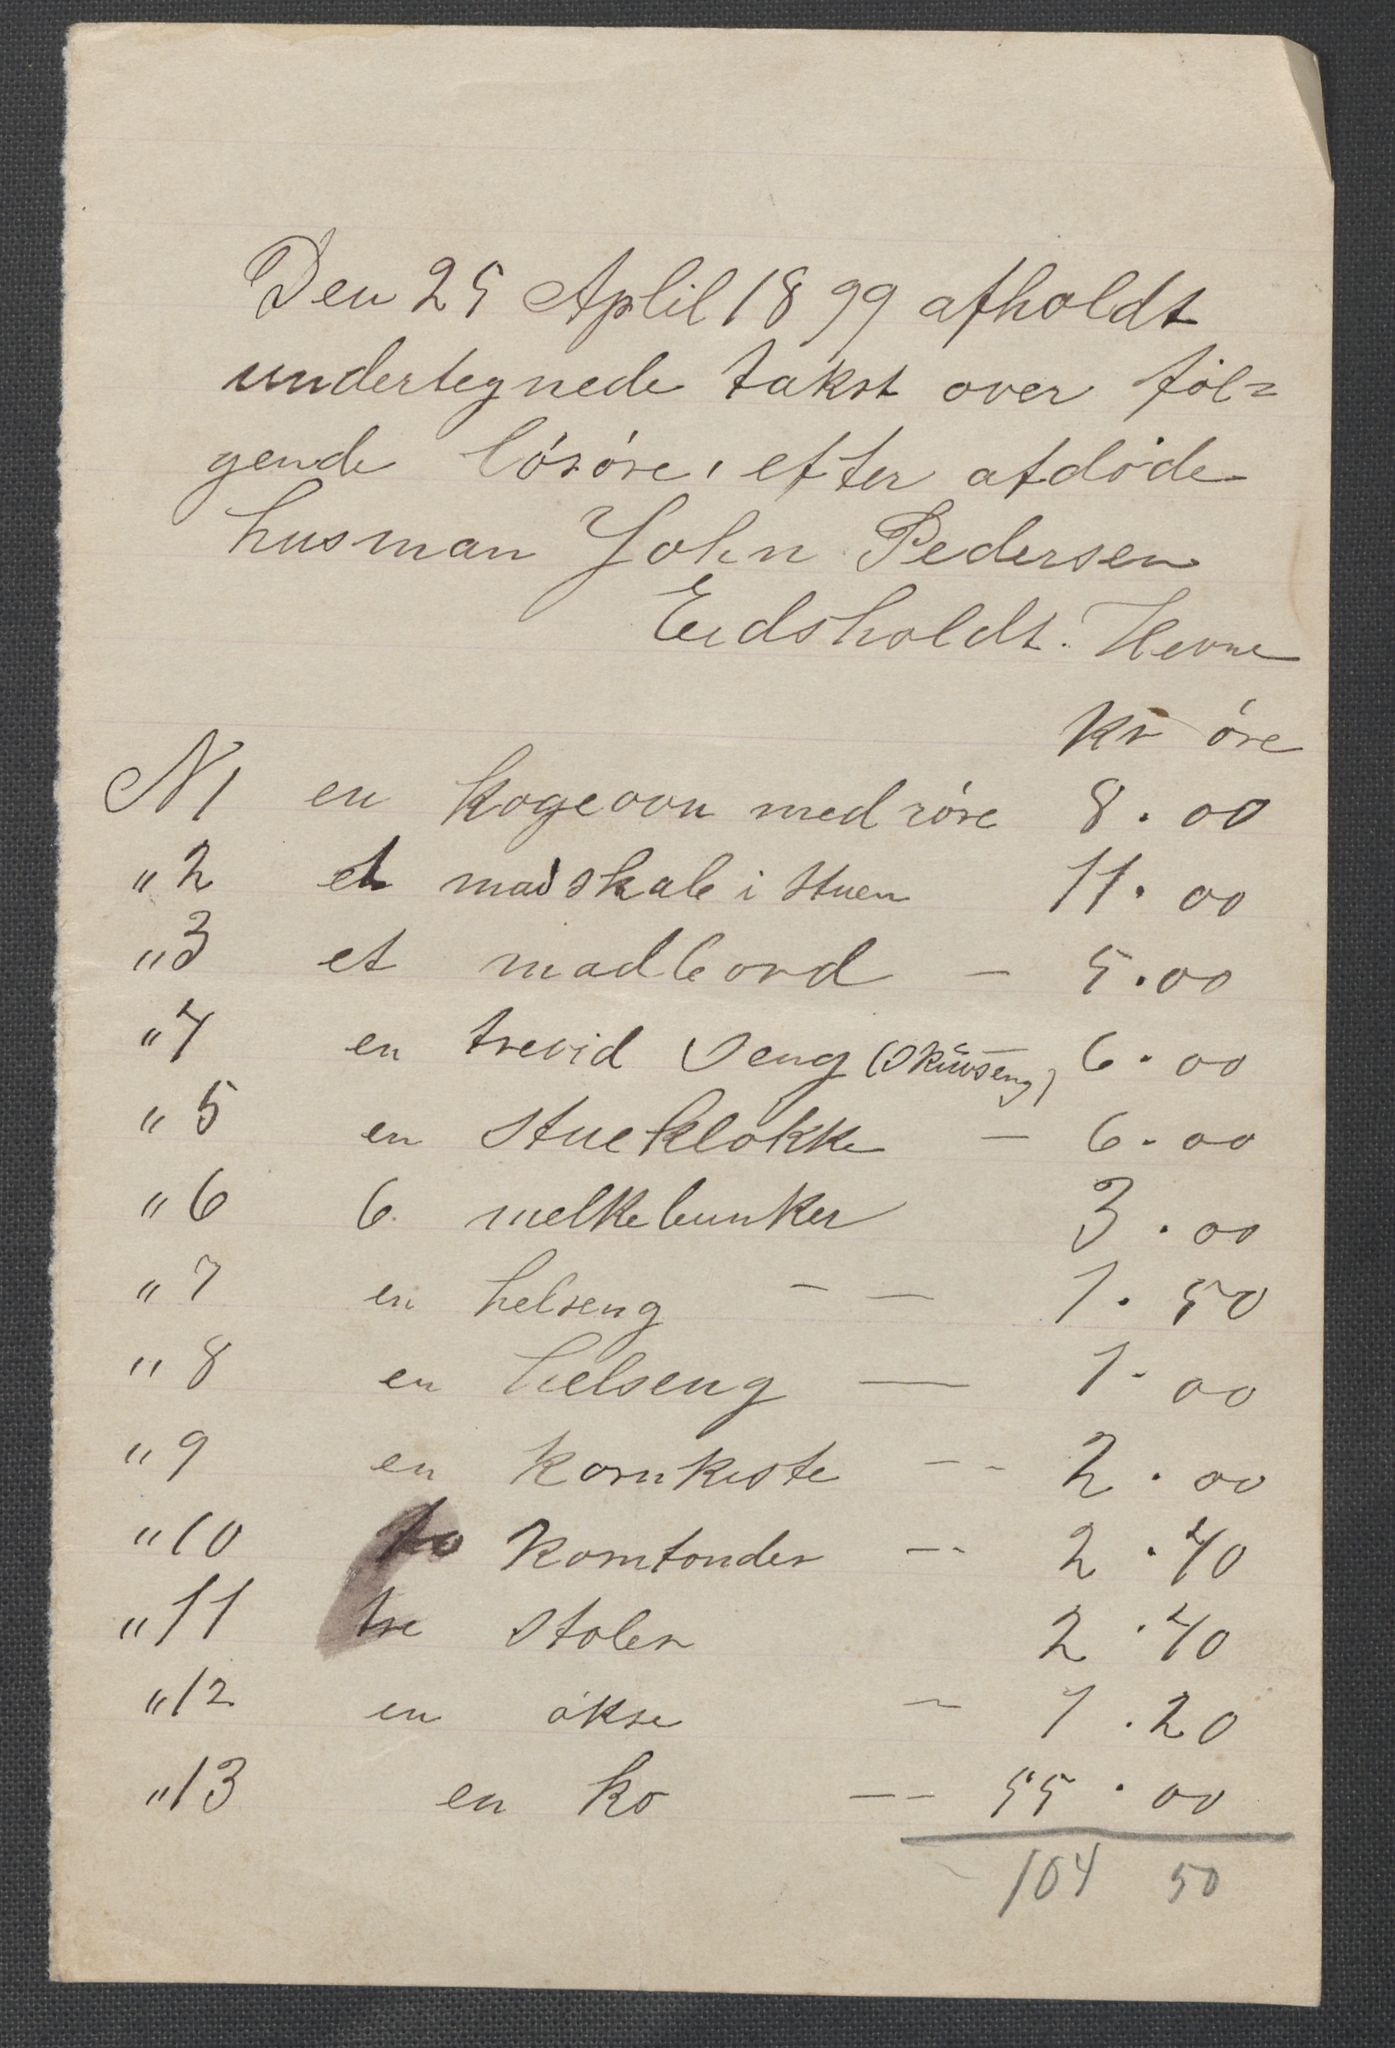 Den 25 Aplil 1899 afholdt
undertegnede takst over føl=
gende lösöre, efter afdøde
husman John Pedersen
Eidsholdt. Hevne
kr öre
N 1 en kogeovn med röre 8.00
" 2 et madskab i stuen 11.00
" 3 et madbord – 5.00
" 4 en trevid seng (skuvseng) 6.00
" 5 en stueklokke – 6.00
" 6 6 melkebunker 3.00
" 7 en helseng – – 1.50
" 8 en helseng — 1.00
" 9 en kornkiste – – 2.00
" 10 to korntonder – – 2.40
" 11 tre stoler 2.40
" 12 en økse – 1.20
" 13 en ko – – 55.00
104 50